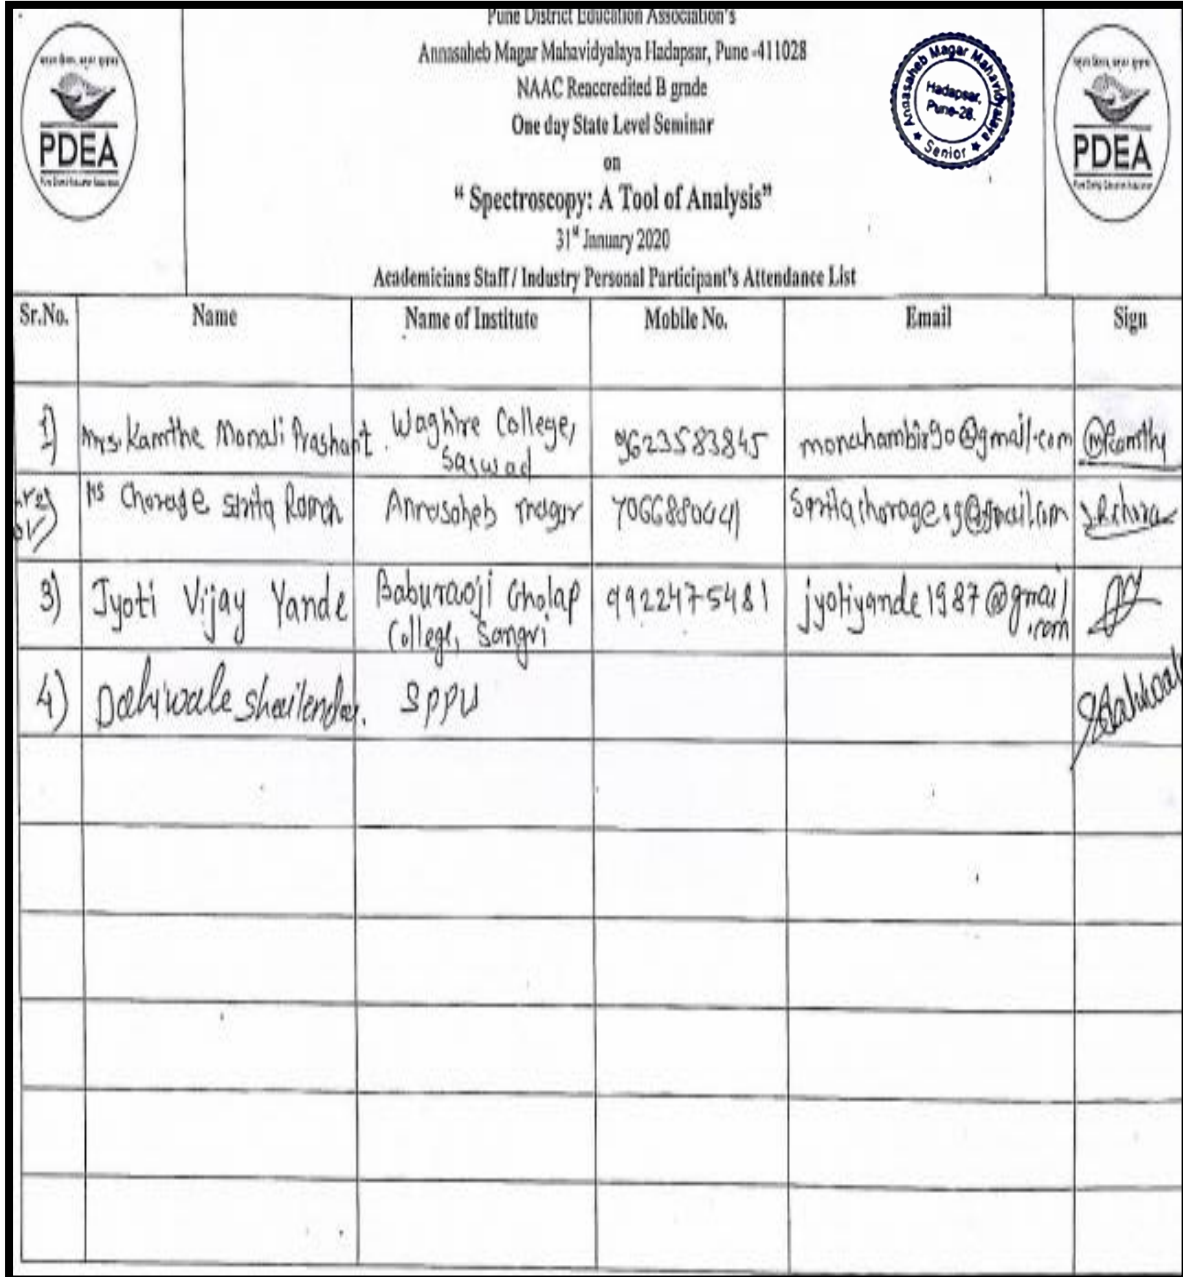 Pune District Education Association's
Annasaheb Magar Mahavidyalaya Hadapsar, Pune -411028
NAAC Reaccredited B grade
One day State Level Seminar
on
“ Spectroscopy: A Tool of Analysis”
31st January 2020
Academicians Staff / Industry Personal Participant's Attendance List
PDEA
Annasaheb Magar Mahavidyalaya
Hadapsar,
Pune-28.
★ Senior ★
PDEA
Sr.No. Name Name of Institute Mobile No. Email Sign
1) Mrs. Kamthe Monali Prashant Waghire College, 9623583845 monahambir90@gmail.com
Saswad
Ms Chorage Annasaheb magar
3) Jyoti Vijay Yande Baburaoji Gholap 9922475481 jyotiyande1987@gmail
College, Sangvi .com
4) Dahiwale Shailendra. SPPU